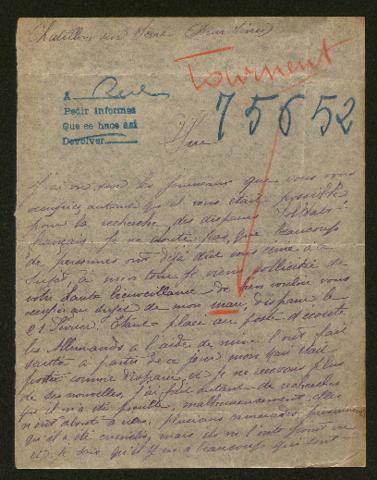 Chatillon sur Sèvre (Deux Sèvres)
Tournent
A
Pedir informes
Que se hace así
Devolver
75652
Sire
J'ai vu sur les journeaux que vous vous
occupiez autant qu'il vous était possible
pour la recherche des disparus Soldats
français. Je ne doute pas que beaucoup
de personnes ont déjà écrit vous à ce
Sujet à mon tour je viens solliciter de
votre haute bienveillance de bien vouloir vous
occuper au sujet de mon mari, disparu le
21 Etant placé au poste d'écoute
les Allemands à l'aide de mine l'ont fait
sauté à partir de ce jour mon mari était
porté comme disparu, et je ne recevais plus
de ses nouvelles, j'ai fait autant de recherches
qu'il m'a été possible, malheureusement, elles
n'ont abouti à rien, plusieurs camarades
qu'il a été mais ils ne l'ont point vu
et je sais qu'il y en a beaucoup qui sont